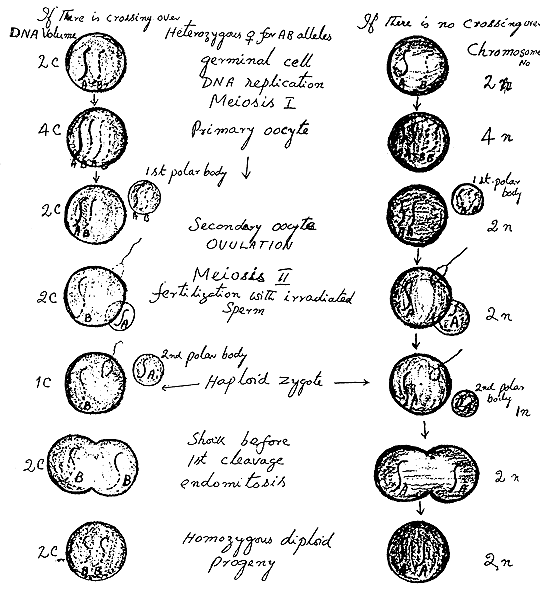 If There is crossing over
If There is no Crossing over
DNA Volume
Heterozygous ♀ for AB alleles
Chromosome No
2C
germinal cell
2n
A B
A B
DNA replication
Meiosis I
4C
Primary oocyte
4n
A B A B
1st polar body
1st polar body
2C
A B
A B
Secondary oocyte
2n
OVULATION
Meiosis II
2C
fertilization with irradiated
2n
B
A
A
Sperm
2nd polar body
1C
A
Haploid zygote
A
2nd polar body
B
A
1n
Shock before
2C
1st cleavage
2n
B
B
A
A
endomitosis
Homozygous diploid
2C
progeny
2n
B B
A A